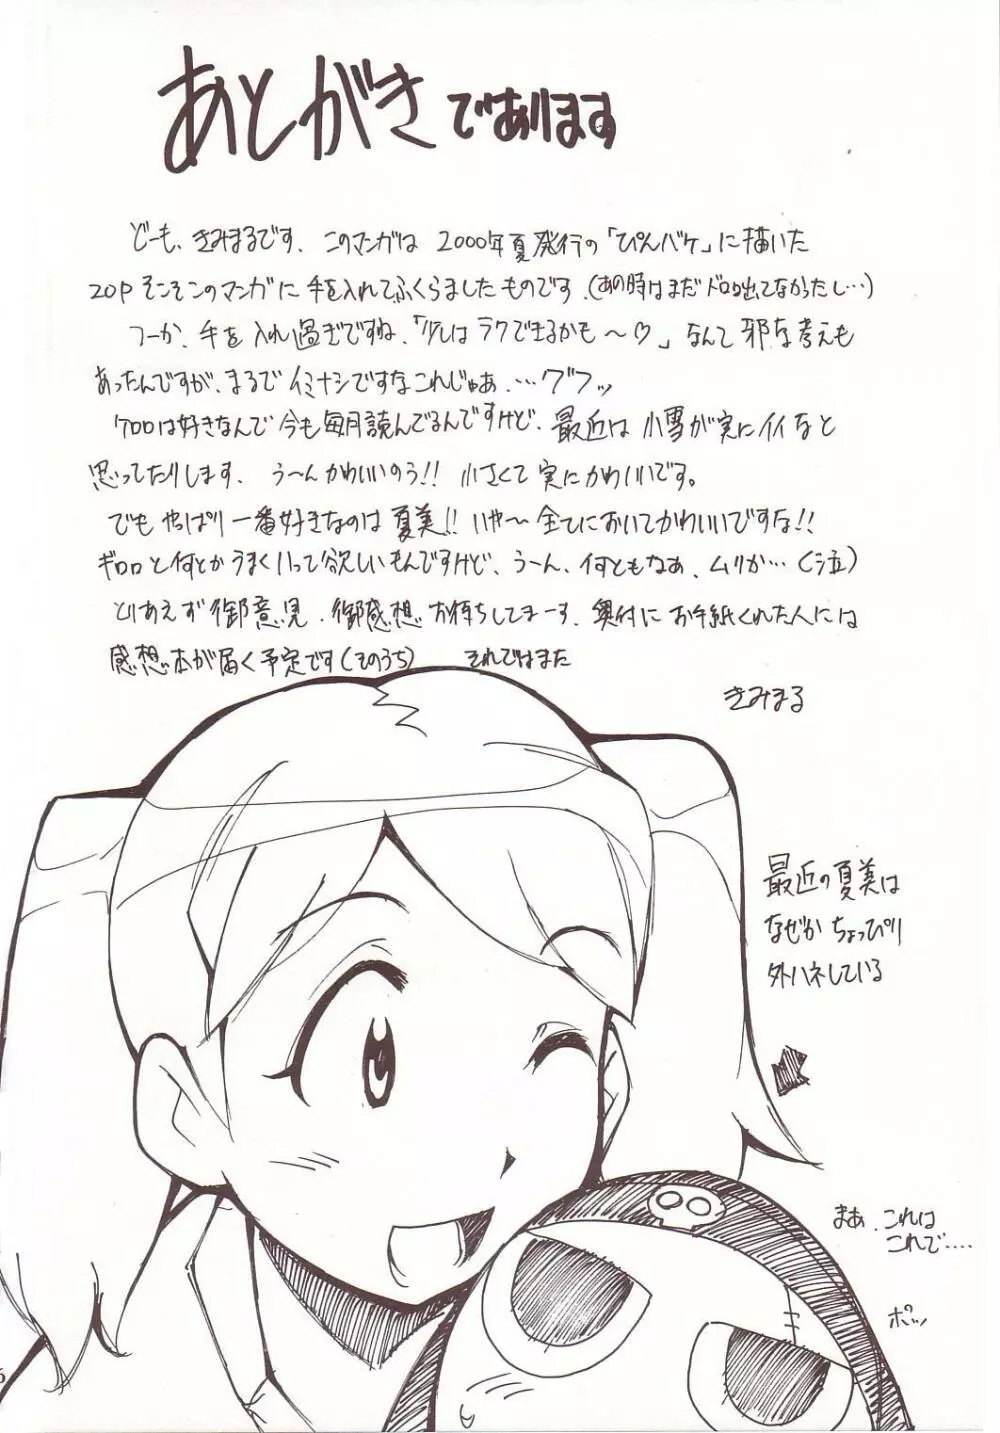 あとがきであります
どーも、きみまるです。このマンガは2000年夏発行の「ぴんバケ」に描いた
20Pそこそこのマンガに手を入れてふくらましたものです。(あの時はまだドロロ出てなかったし…)
つーか、手を入れ過ぎですね、「少しはラクできるかも～♡」なんて邪な考えも
あったんですが、まるでイミナシですなこれじゃぁ、…グフッ
ケロロは好きなんで今も毎月読んでるんですけど、最近は小雪が実にイイなと
思ってたりします、う～んかわいいのう!!小さくて実にかわいいです。
でもやっぱり一番好きなのは夏美!!いや～全てにおいてかわいいですな!!
ギロロと何とかうまくいって欲しいもんですけど、う～ん、何ともなぁ、ムリか…(泣)
とりあえず御意見、御感想お待ちしてまーす、奥付にお手紙くれた人には
感想本が届く予定です(そのうち) それではまた
きみまる
最近の夏美は
なぜかちょっぴり
外ハネしている
まぁ、これは
これで....
ポッ